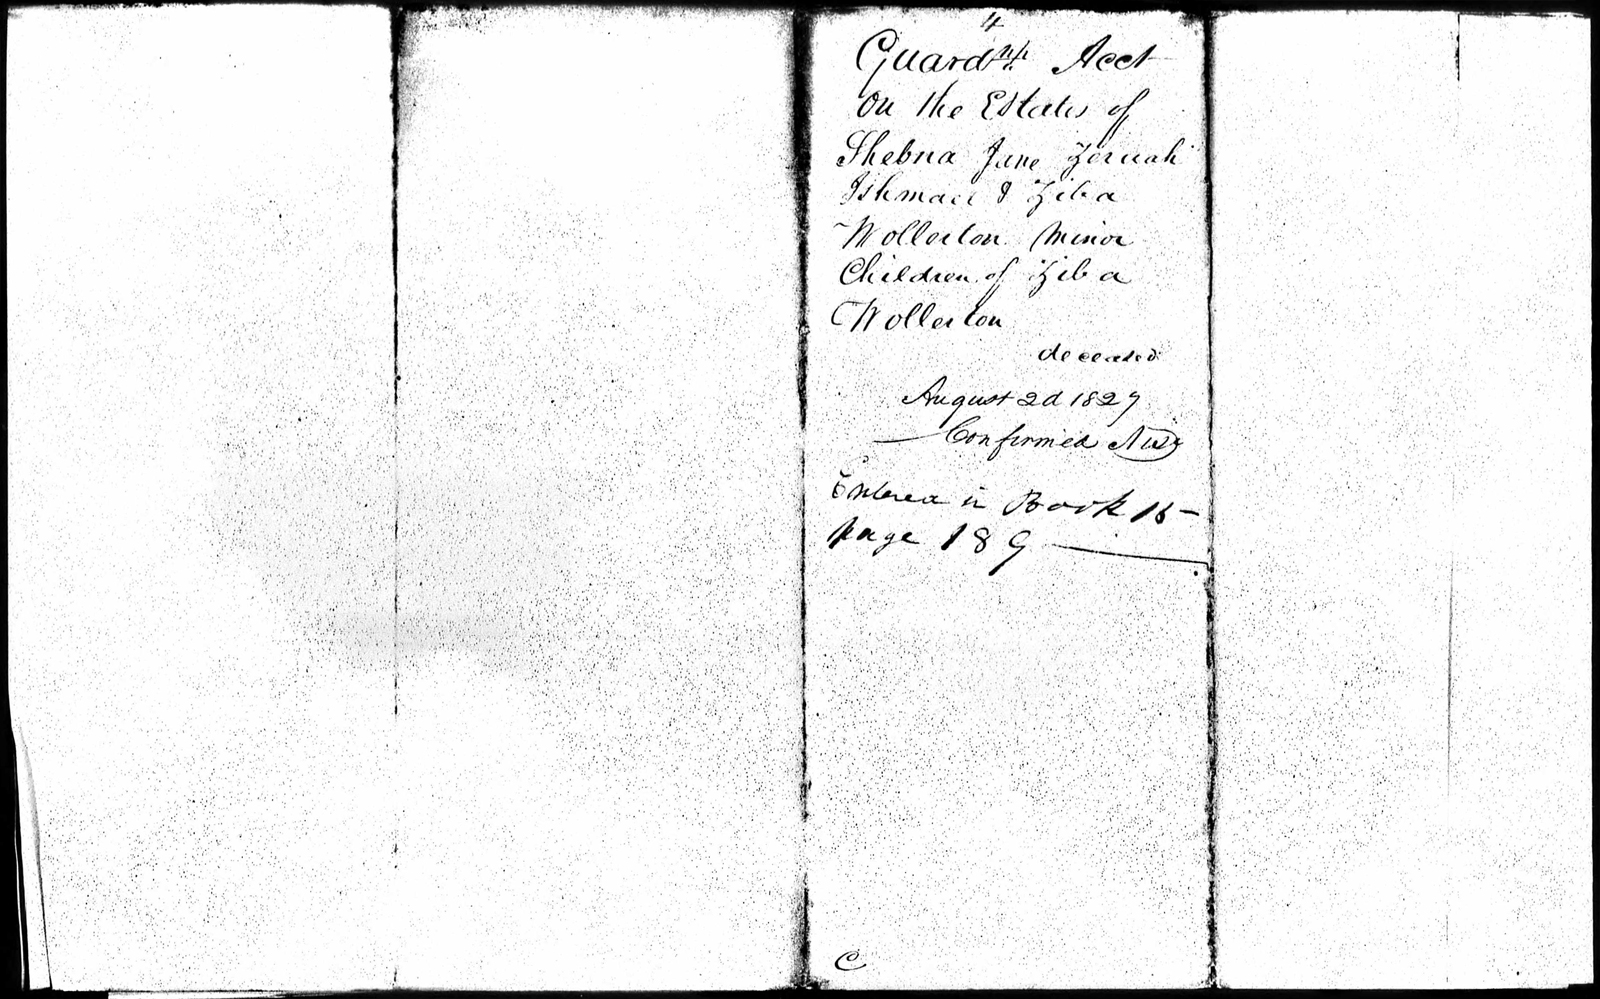 4
Guardn's Acct
On the Estates of
Shebna Jane Zeruah
Ishmael & Ziba
Wollerton Minor
Children of Ziba
Wollerton
deceased
August 2d 1827
Confirmed Nisi
Entered in Book 15
page 189
C